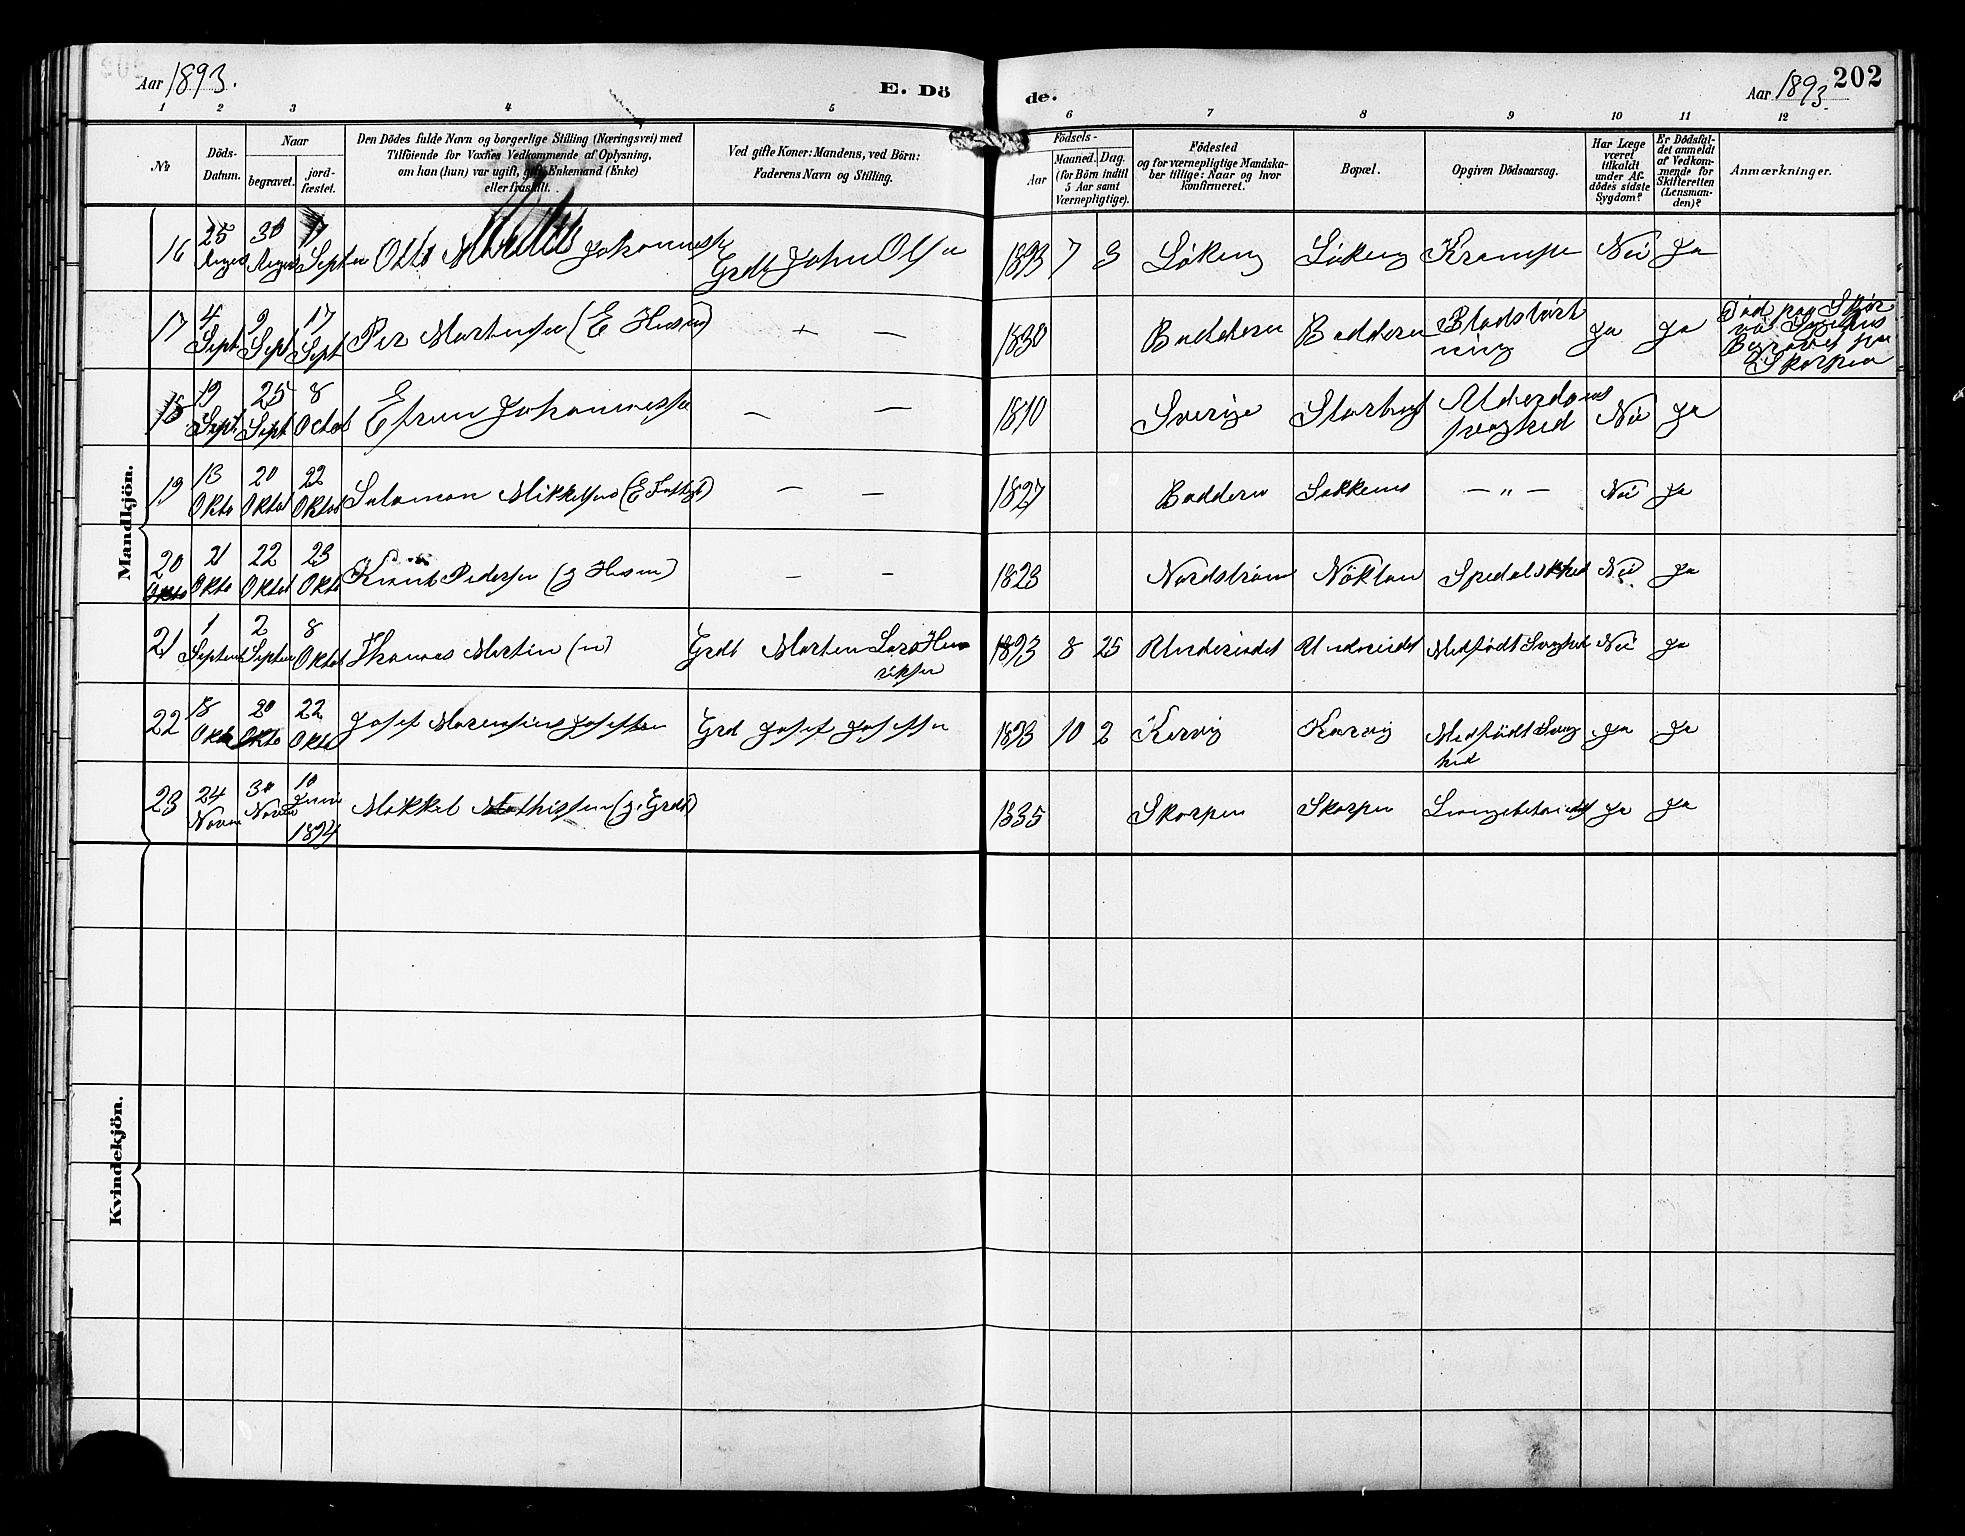 Aar 1893. E. Dö de. Aar 1893. 202
1 2 3 4 5 6 7 8 9 10 11 12
№ Döds-Datum. Naar begravet. jordfæstet. Den Dödes fulde Navn og borgerlige Stilling (Næringsvei) med Tilföiende for Voxnes Vedkommende af Oplysning, om han (hun) var ugift, gift, Enkemand (Enke) eller fraskilt. Ved gifte Koner: Mandens, ved Börn: Faderens Navn og Stilling. Födsels- Aar Maaned. Dag. (for Börn indtil 5 Aar samt Værnepligtige). Födested og for værnepligtige Mandskaber tillige: Naar og hvor konfirmeret. Bopæl. Opgiven Dödsaarsag. Har Læge været tilkaldt under Afdödes sidste Sygdom? Er Dödsfaldet anmeldt af Vedkommende for Skifteretten (Lensmanden)? Anmærkninger.
Mandkjön.
16 25 August 30 August 17 Septer Otto Johannes Grdb John Olsen 1893 7 3 Löking Löking Krampe Nei Ja
17 4 Sept 9 Sept 17 Sept Per Mortensen (E Husm) — — 1830 Badderen Badderen Blodstörtning Ja Ja Död paa Skjervö Begravet paa Skorpen
18 19 Sept 25 Sept 8 Octob Efren Johannessen — — 1810 Sverige Storbugt Alderdomssvaghed Nei Ja
19 13 Okto 20 Oktob 22 Oktob Salomon Mikkelsen (E Fattigl) — — 1827 Badderen Sakkemo — „ — Nei Ja
20 21 Okto 22 Oktob 23 Okto Knut Pedersen (g Husm) — — 1823 Nordström Nöklan Spedalskhed Nei Ja
21 1 Septem 2 Septem 8 Oktob Thomas Martin (n) Grdb Morten Lars Henriksen 1893 8 25 Undereidet Undereidet Medfödt Svaghed Nei Ja
22 18 Okto 20 Okto 22 Okto Josef Josefsen Grd Josef Josefsen 1893 10 2 Kervig Karvig Medfödt Svaghed Ja Ja
23 24 Novem 30 Novem 10 Juni 1894 Mekkel Mathissen (g. Grdb) 1835 Skorpen Skorpen Lungebetændelse Ja Ja
Kvindekjön.